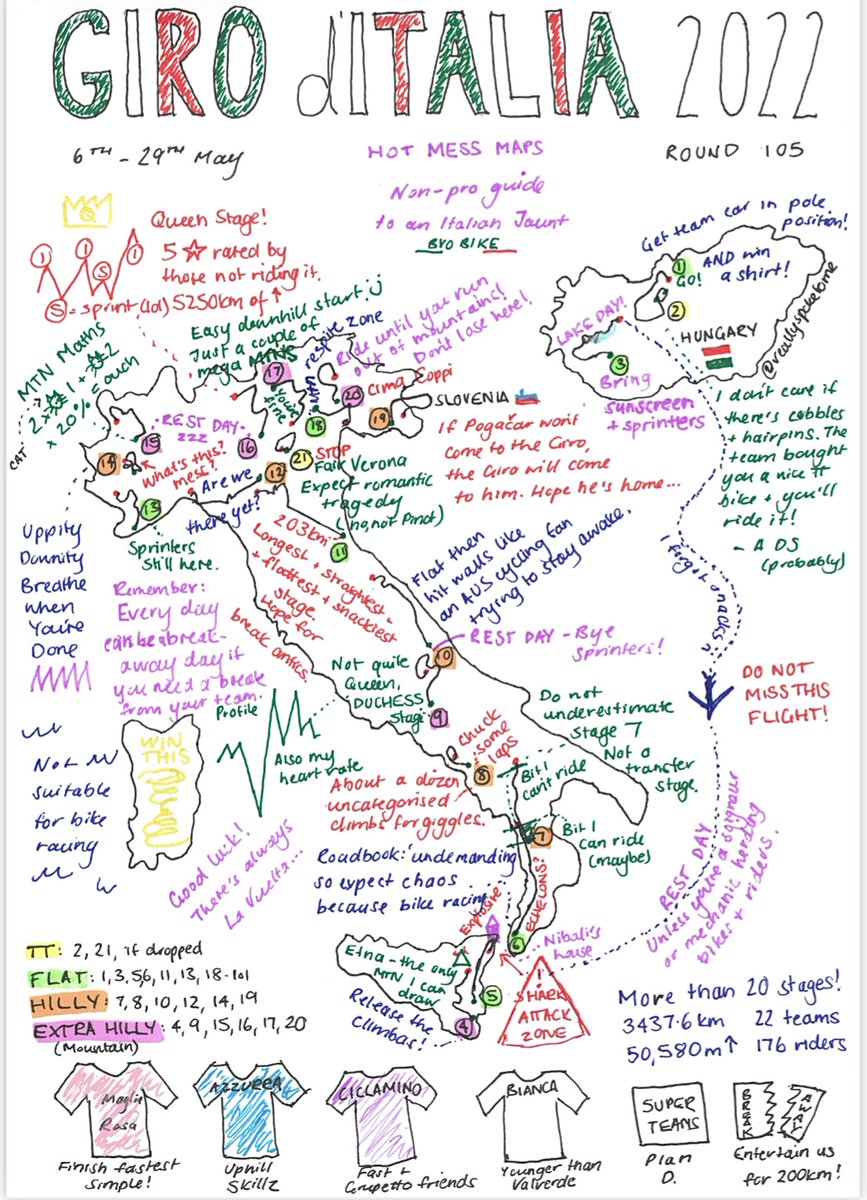 GIRO d'ITALIA 2022
6TH - 29TH May
HOT MESS MAPS
ROUND 105
Non-pro guide
to an Italian Jaunt
BYO BIKE
Q
Queen Stage!
5 ☆ rated by
those not riding it.
1
1
S
1
S = sprint (lol) 5250km of ↑
Get team car in pole
position!
AND win
a shirt!
1
GO!
2
LAKE DAY!
HUNGARY
3
Bring
sunscreen
+ sprinters
@reallyspokelome
Easy downhill start :)
Just a couple of
mega MTNS
17
You're
fine
MTN respite zone
18
Ride until you run
out of mountains!
Don't lose here!
20
Cima Coppi
19
SLOVENIA
MTN Maths
2 x 1 + 2
x 20% = ouch
CAT
15
REST DAY -
ZZZ
16
14
What's this?
mess?
Are we
there yet?
12
21
STOP
Fair Verona
Expect romantic
tragedy
(no, not Pinot)
13
Sprinters
Still here.
If Pogačar won't
come to the Giro,
the Giro will come
to him. Hope he's home...
I don't care if
there's cobbles
+ hairpins. The
team bought
you a nice TT
bike + you'll
ride it!
- A DS
(probably)
Uppity
Downity
Breathe
when
You're
Done
Remember:
Every day
can be a break-
away day if
you need a break
from your team.
203km
Longest + straightest +
+ flattest + snackiest
stage.
Hope for
break antics.
11
Flat then
hit walls like
an AUS cycling fan
trying to stay awake.
I forgot snacks
10
REST DAY - Bye
sprinters!
DO NOT
MISS THIS
FLIGHT!
Not quite
Queen,
DUCHESS
Stage
9
Profile
Also my
heart rate
WIN
THIS
Not
suitable
for bike
racing
Chuck
some
laps
8
Do not
underestimate
stage 7
Not a
transfer
stage.
Bit I
can't ride
About a dozen
uncategorised
climbs for giggles.
7
Bit I
can ride
(maybe)
Good luck!
There's always
La Vuelta...
Roadbook: 'undemanding'
so expect chaos
because bike racing
ECHELONS?
6
Nibali's
house
REST DAY
Unless you're a soigneur
or mechanic herding
bikes + riders.
Etna - the only
MTN I can
draw
5
4
Release the
climbas!
!
SHARK
ATTACK
ZONE
TT: 2, 21, if dropped
FLAT: 1,3,5,6,11,13,18-lol
HILLY: 7,8,10,12,14,19
EXTRA HILLY: 4,9,15,16,17,20
(Mountain)
More than 20 stages!
3437.6km 22 teams
50,580m↑ 176 riders
Maglia
Rosa
Finish fastest
Simple!
AZZURRA
Uphill
Skillz
CICLAMINO
Fast +
Grupetto friends
BIANCA
Younger than
Valverde
SUPER
TEAMS
Plan
D.
BREAK
AWAY
Entertain us
for 200km!